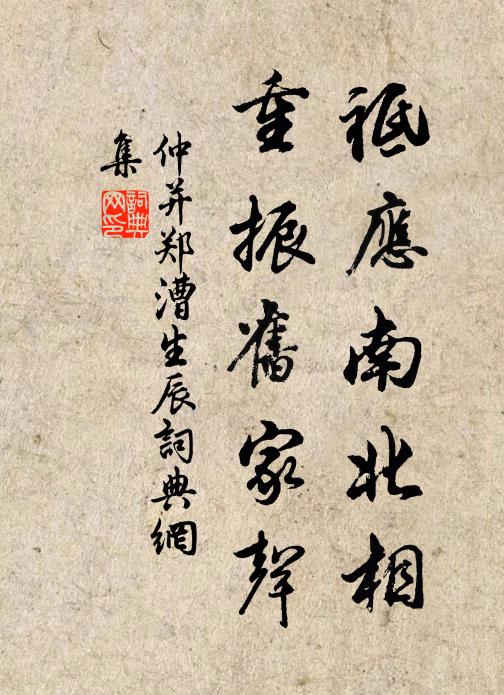 祗應南北相
重振舊家聲
仲并郑漕生辰詞典網
集
詞典
网印